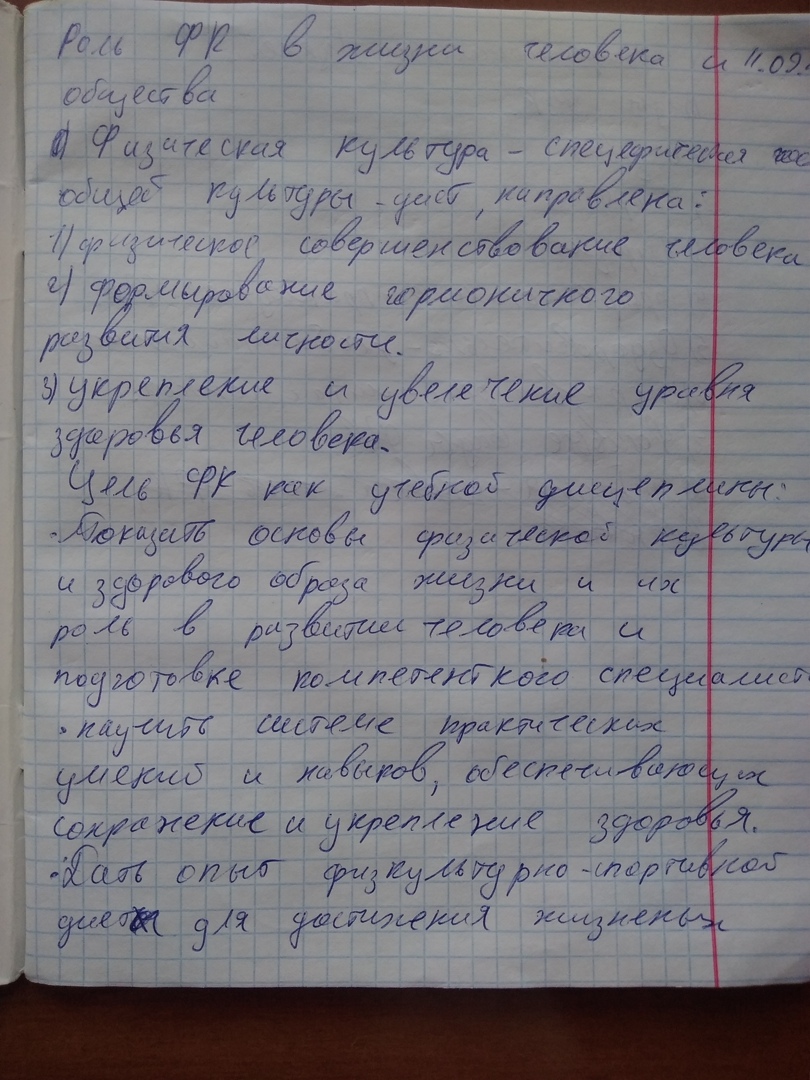 Роль ФК в жизни человека и 11.09.
общества
Физическая культура - спецефическая
общей культуры - , направлена:
1) физическое совершенствование человека
2) формирование гормоничкого
развития личности.
3) укрепление и увелечение уравня
здоровья человека.
Цель ФК как учебной дисцеплины:
· Показать основы физической культуры
и здорового образа жизни и их
роль в развитии человека и
подготовке компетентного специалист
· научить системе практических
умений и навыков, обеспечивающих
сохражение и укрепление здоровья.
· Дать опыт физкультурно-спортивной
для достижения жизненых